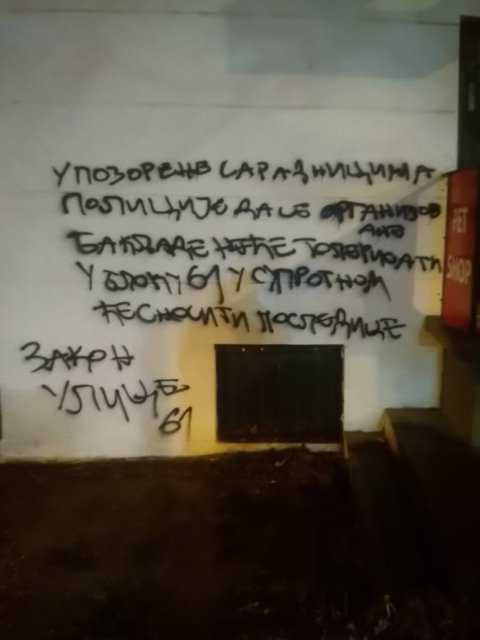 УПОЗОРЕЊЕ САРАДНИЦИМА
ПОЛИЦИЈЕ ДА СЕ ОРГАНИЗОВ
АНЕ
БАКЉАДЕ НЕЋЕ ТОЛЕРИСАТИ
У БЛОКУ 61 У СУПРОТНОМ
ЋЕ СНОСИТИ ПОСЛЕДИЦЕ
ЗАКОН
УЛИЦЕ
61
PET
SHOP